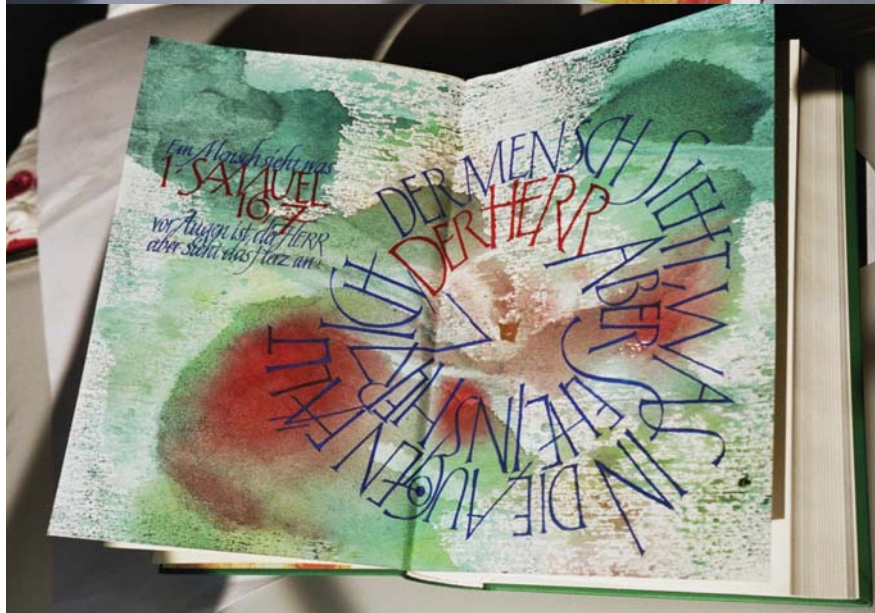 Ein Mensch sieht was
1·SAMUEL
16,7
vor Augen ist, da HERR
aber sieht das Herz an!
DER MENSCH SIEHT WAS IN DIE AUGEN FÄLLT
DER HERR ABER SEHE INS